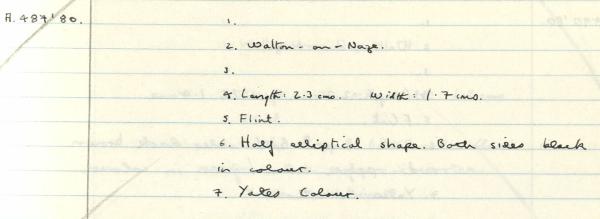 A.487'80.
1.
2. Walton-on-Naze.
3.
4. Length: 2.3 cms. Width: 1.7 cms.
5. Flint.
6. Half elliptical shape. Both sides black
in colour.
7. Yates Colour.